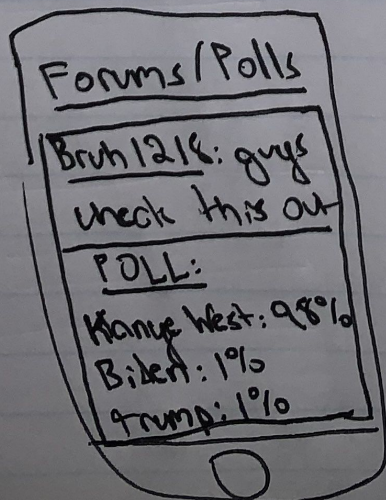 Forums/Polls
Bruh1218: guys
check this out
POLL:
Kanye West: 98%
Biden: 1%
trump: 1%